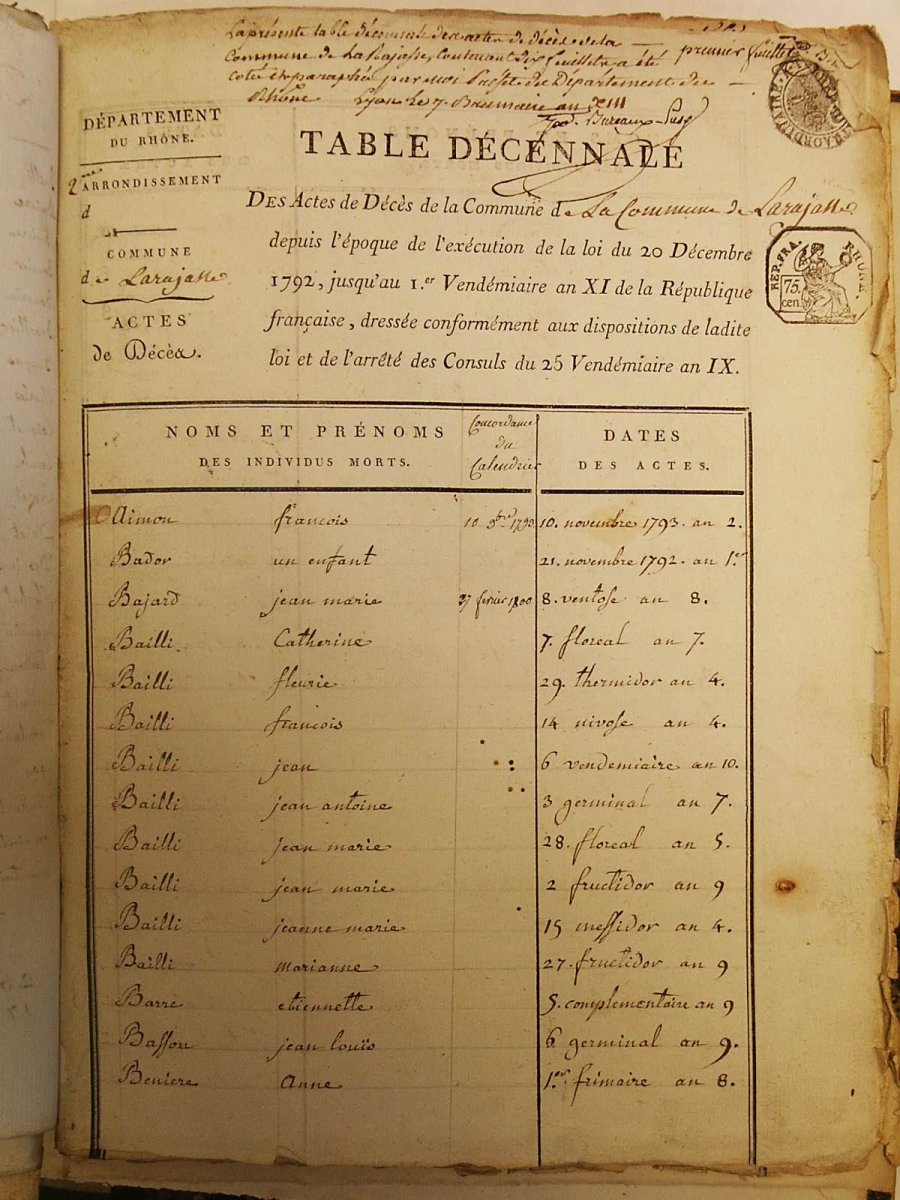 La présente table décennale des actes de décès de la
Commune de La Rajasse, Contenant dix feuillets a été
premier feuillet
coté et paraphé par moi Préfet du Département du
Rhône Lyon le 7. Brumaire an XIII
Bureaux-Pusy
DÉPARTEMENT
DU RHÔNE.
2me ARRONDISSEMENT
d
COMMUNE
de Larajasse
ACTES
de Décès.
TABLE DÉCENNALE
DES Actes de Décès de la Commune de La Commune de Larajasse
depuis l'époque de l'exécution de la loi du 20 Décembre
1792, jusqu'au 1.er Vendémiaire an XI de la République
française, dressée conformément aux dispositions de ladite
loi et de l'arrêté des Consuls du 25 Vendémiaire an IX.
REP. FRA. RHONE.
75
cen.
NOMS ET PRÉNOMS
DES INDIVIDUS MORTS.
Concordance
du
Calendrier
DATES
DES ACTES.
Aimon francois 10 9bre 1793 10. novembre 1793. an 2.
Bador un enfant 21. novembre 1792. an 1.er
Bajard jean marie 27 fevrier 1800 8. ventose an 8.
Bailli Catherine 7. floreal an 7.
Bailli fleurie 29. thermidor an 4.
Bailli francois 14 nivose an 4.
Bailli jean 6 vendemiaire an 10.
Bailli jean antoine 3 germinal an 7.
Bailli jean marie 28. floreal an 5.
Bailli jean marie 2 fructidor an 9
Bailli jeanne marie 15 messidor an 4.
Bailli marianne 27. fructidor an 9
Barre etiennette 5. complementaire an 9
Basson jean louïs 6 germinal an 9.
Beniere anne 1.er frimaire an 8.